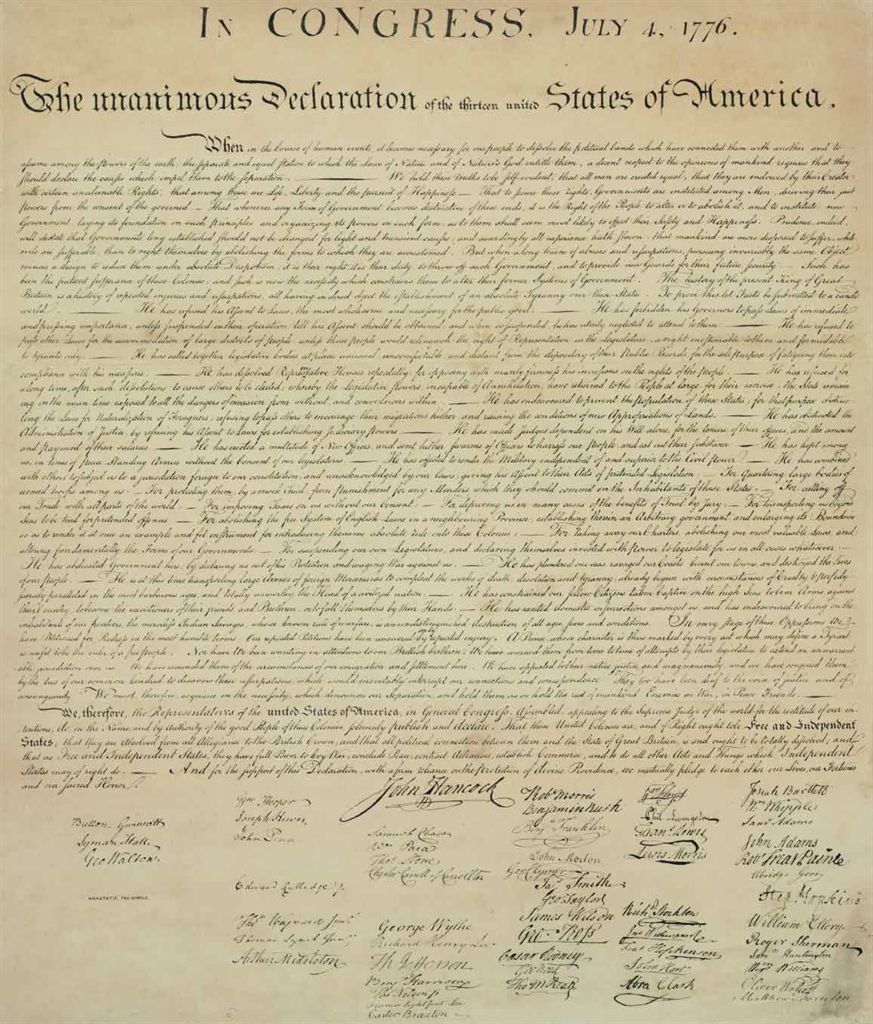 IN CONGRESS, JULY 4, 1776.
The unanimous Declaration of the thirteen united States of America,
When in the Course of human events, it becomes necessary for one people to dissolve the political bands which have connected them with another, and to
assume among the powers of the earth, the separate and equal station to which the Laws of Nature and of Nature's God entitle them, a decent respect to the opinions of mankind requires that they
should declare the causes which impel them to the separation. — We hold these truths to be self-evident, that all men are created equal, that they are endowed by their Creator
with certain unalienable Rights, that among these are Life, Liberty and the pursuit of Happiness. — That to secure these rights, Governments are instituted among Men, deriving their just
powers from the consent of the governed, — That whenever any Form of Government becomes destructive of these ends, it is the Right of the People to alter or to abolish it, and to institute new
Government, laying its foundation on such principles and organizing its powers in such form, as to them shall seem most likely to effect their Safety and Happiness. Prudence, indeed,
will dictate that Governments long established should not be changed for light and transient causes; and accordingly all experience hath shewn, that mankind are more disposed to suffer, while
evils are sufferable, than to right themselves by abolishing the forms to which they are accustomed. But when a long train of abuses and usurpations, pursuing invariably the same Object
evinces a design to reduce them under absolute Despotism, it is their right, it is their duty, to throw off such Government, and to provide new Guards for their future security. — Such has
been the patient sufferance of these Colonies; and such is now the necessity which constrains them to alter their former Systems of Government. The history of the present King of Great
Britain is a history of repeated injuries and usurpations, all having in direct object the establishment of an absolute Tyranny over these States. To prove this, let Facts be submitted to a candid
world. — He has refused his Assent to Laws, the most wholesome and necessary for the public good. — He has forbidden his Governors to pass Laws of immediate
and pressing importance, unless suspended in their operation till his Assent should be obtained; and when so suspended, he has utterly neglected to attend to them. — He has refused to
pass other Laws for the accommodation of large districts of people, unless those people would relinquish the right of Representation in the Legislature, a right inestimable to them and formidable
to tyrants only. — He has called together legislative bodies at places unusual, uncomfortable, and distant from the depository of their Public Records, for the sole purpose of fatiguing them into
compliance with his measures. — He has dissolved Representative Houses repeatedly, for opposing with manly firmness his invasions on the rights of the people. — He has refused for
a long time, after such dissolutions, to cause others to be elected; whereby the Legislative powers, incapable of Annihilation, have returned to the People at large for their exercise; the State remain-
ing in the mean time exposed to all the dangers of invasion from without, and convulsions within. — He has endeavoured to prevent the population of these States; for that purpose obstruc-
ting the Laws for Naturalization of Foreigners; refusing to pass others to encourage their migrations hither, and raising the conditions of new Appropriations of Lands. — He has obstructed the
Administration of Justice, by refusing his Assent to Laws for establishing Judiciary powers. — He has made Judges dependent on his Will alone, for the tenure of their offices, and the amount
and payment of their salaries. — He has erected a multitude of New Offices, and sent hither swarms of Officers to harrass our people, and eat out their substance. — He has kept among
us, in times of peace, Standing Armies without the Consent of our legislatures. — He has affected to render the Military independent of and superior to the Civil power. — He has combined
with others to subject us to a jurisdiction foreign to our constitution, and unacknowledged by our laws; giving his Assent to their Acts of pretended Legislation: — For Quartering large bodies of
armed troops among us: — For protecting them, by a mock Trial, from punishment for any Murders which they should commit on the Inhabitants of these States: — For cutting off
our Trade with all parts of the world: — For imposing Taxes on us without our Consent: — For depriving us in many cases, of the benefits of Trial by Jury: — For transporting us beyond
Seas to be tried for pretended offences — For abolishing the free System of English Laws in a neighbouring Province, establishing therein an Arbitrary government, and enlarging its Boundaries
so as to render it at once an example and fit instrument for introducing the same absolute rule into these Colonies: — For taking away our Charters, abolishing our most valuable Laws, and
altering fundamentally the Forms of our Governments: — For suspending our own Legislatures, and declaring themselves invested with power to legislate for us in all cases whatsoever. —
He has abdicated Government here, by declaring us out of his Protection and waging War against us. — He has plundered our seas, ravaged our Coasts, burnt our towns, and destroyed the lives
of our people. — He is at this time transporting large Armies of foreign Mercenaries to compleat the works of death, desolation and tyranny, already begun with circumstances of Cruelty & perfidy
scarcely paralleled in the most barbarous ages, and totally unworthy the Head of a civilized nation. — He has constrained our fellow Citizens taken Captive on the high Seas to bear Arms against
their Country, to become the executioners of their friends and Brethren, or to fall themselves by their Hands. — He has excited domestic insurrections amongst us, and has endeavoured to bring on the
inhabitants of our frontiers, the merciless Indian Savages, whose known rule of warfare, is an undistinguished destruction of all ages, sexes and conditions. In every stage of these Oppressions We
have Petitioned for Redress in the most humble terms: Our repeated Petitions have been answered only by repeated injury. A Prince, whose character is thus marked by every act which may define a Tyrant,
is unfit to be the ruler of a free people. Nor have We been wanting in attentions to our Brittish brethren. We have warned them from time to time of attempts by their legislature to extend an unwarrant-
able jurisdiction over us. We have reminded them of the circumstances of our emigration and settlement here. We have appealed to their native justice and magnanimity, and we have conjured them
by the ties of our common kindred to disavow these usurpations, which, would inevitably interrupt our connections and correspondence. They too have been deaf to the voice of justice and of
consanguinity. We must, therefore, acquiesce in the necessity, which denounces our Separation, and hold them, as we hold the rest of mankind, Enemies in War, in Peace Friends. —
We, therefore, the Representatives of the united States of America, in General Congress, Assembled, appealing to the Supreme Judge of the world for the rectitude of our in-
tentions, do, in the Name, and by Authority of the good People of these Colonies, solemnly publish and declare, That these United Colonies are, and of Right ought to be Free and Independent
States; that they are Absolved from all Allegiance to the British Crown, and that all political connection between them and the State of Great Britain, is and ought to be totally dissolved; and
that as Free and Independent States, they have full Power to levy War, conclude Peace, contract Alliances, establish Commerce, and to do all other Acts and Things which Independent
States may of right do. — And for the support of this Declaration, with a firm reliance on the protection of divine Providence, we mutually pledge to each other our Lives, our Fortunes
and our sacred Honor.
Button Gwinnett
Lyman Hall
Geo Walton.
ANASTATIC FACSIMILE.
Wm Hooper
Joseph Hewes,
John Penn
Edward Rutledge /.
Thos Heyward Junr.
Thomas Lynch Junr.
Arthur Middleton
John Hancock
Samuel Chase
Wm Paca
Thos Stone
Charles Carroll of Carrollton
George Wythe
Richard Henry Lee
Th Jefferson
Benj Harrison
Thos Nelson jr.
Francis Lightfoot Lee
Carter Braxton
Robt Morris
Benjamin Rush
Benj Franklin
John Morton
Geo Clymer
Jas Smith
Geo Taylor
James Wilson
Geo. Ross
Caesar Rodney
Geo Read
Tho M:Kean
Wm Floyd
Phil. Livingston
Frans. Lewis
Lewis Morris
Richd. Stockton
Jno Witherspoon
Fras. Hopkinson
John Hart
Abra Clark
Josiah Bartlett
Wm Whipple
Saml Adams
John Adams
Robt Treat Paine
Elbridge Gerry
Step Hopkins
William Ellery
Roger Sherman
Saml Huntington
Wm Williams
Oliver Wolcott
Matthew Thornton